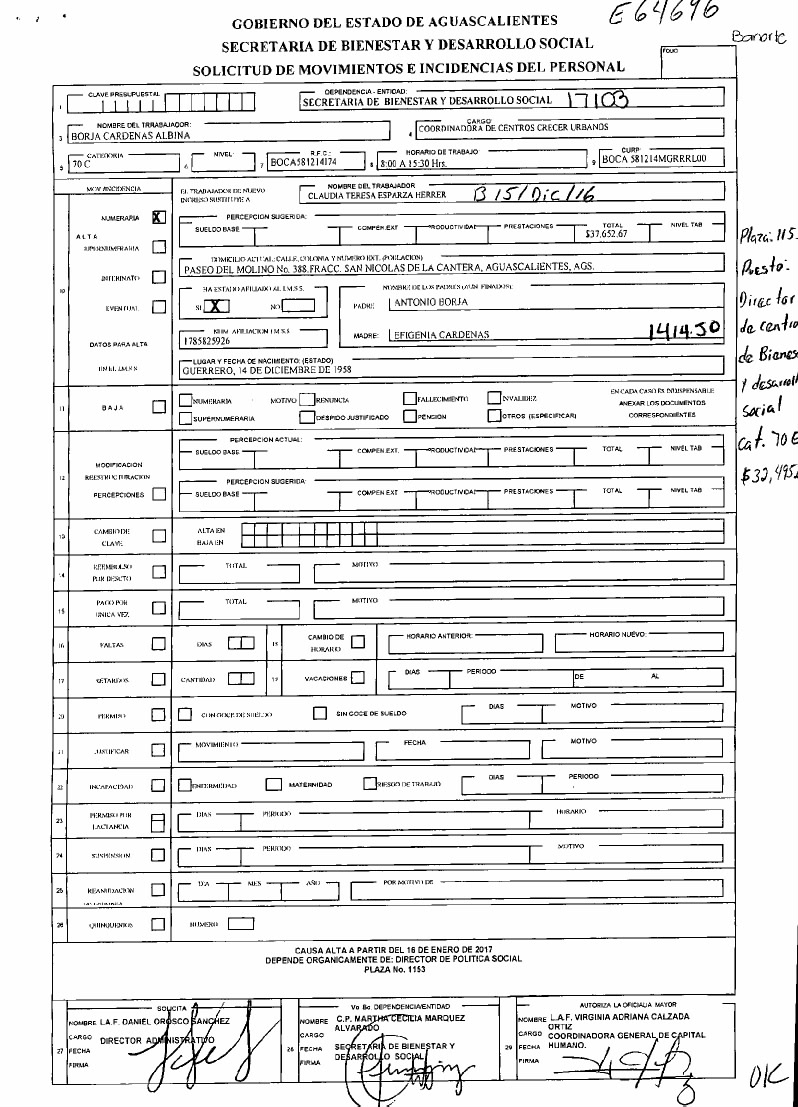 E64696
Banorte
GOBIERNO DEL ESTADO DE AGUASCALIENTES
SECRETARIA DE BIENESTAR Y DESARROLLO SOCIAL
SOLICITUD DE MOVIMIENTOS E INCIDENCIAS DEL PERSONAL
FOLIO
CLAVE PRESUPUESTAL
DEPENDENCIA - ENTIDAD:
1
SECRETARIA DE BIENESTAR Y DESARROLLO SOCIAL 17103
NOMBRE DEL TRRABAJADOR:
CARGO
3 BORJA CARDENAS ALBINA
4 COORDINADORA DE CENTROS CRECER URBANOS
CATEGORIA NIVEL: R.F.C.: HORARIO DE TRABAJO: CURP:
5 70 C 6 7 BOCA581214174 8 8:00 A 15:30 Hrs. 9 BOCA 581214MGRRRL00
MOV/INCIDENCIA
EL TRABAJADOR DE NUEVO INGRESO SUSTITUYE A
NOMBRE DEL TRABAJADOR
CLAUDIA TERESA ESPARZA HERRER B 15/Dic/16
NUMERARIA X
PERCEPCION SUGERIDA:
SUELDO BASE COMPEN.EXT PRODUCTIVIDAD PRESTACIONES TOTAL NIVEL TAB
$37,652.67
ALTA
SUPERNUMERARIA
DOMICILIO ACTUAL: CALLE, COLONIA Y NUMERO EXT. (POBLACION)
PASEO DEL MOLINO No. 388.FRACC. SAN NICOLAS DE LA CANTERA, AGUASCALIENTES, AGS.
INTERINATO
10
HA ESTADO AFILIADO AL I.M.S.S.
NOMBRE DE LOS PADRES (AUN FINADOS):
EVENTUAL
SI X NO
PADRE ANTONIO BORJA
NUM. AFILIACION I.M.S.S
MADRE: EFIGENIA CARDENAS 1414.50
DATOS PARA ALTA
1785825926
EN EL I.M.S.S
LUGAR Y FECHA DE NACIMIENTO: (ESTADO)
GUERRERO, 14 DE DICIEMBRE DE 1958
11 BAJA
NUMERARIA MOTIVO RENUNCIA FALLECIMIENTO INVALIDEZ
SUPERNUMERARIA DESPIDO JUSTIFICADO PENCION OTROS (ESPECIFICAR)
EN CADA CASO ES INDISPENSABLE
ANEXAR LOS DOCUMENTOS
CORRESPONDIENTES
PERCEPCION ACTUAL:
SUELDO BASE COMPEN.EXT. PRODUCTIVIDAD PRESTACIONES TOTAL NIVEL TAB
MODIFICACION
12 REESTRUCTURACION
PERCEPCIONES
PERCEPCION SUGERIDA:
SUELDO BASE COMPEN.EXT PRODUCTIVIDAD PRESTACIONES TOTAL NIVEL TAB
13 CAMBIO DE CLAVE
ALTA EN
BAJA EN
14 REEMBOLSO POR DESCTO TOTAL MOTIVO
15 PAGO POR UNICA VEZ TOTAL MOTIVO
16 FALTAS DIAS 18 CAMBIO DE HORARIO HORARIO ANTERIOR: HORARIO NUEVO:
17 RETARDOS CANTIDAD 19 VACACIONES DIAS PERIODO DE AL
20 PERMISO CON GOCE DE SUELDO SIN GOCE DE SUELDO DIAS MOTIVO
21 JUSTIFICAR MOVIMIENTO FECHA MOTIVO
22 INCAPACIDAD ENFERMEDAD MATERNIDAD RIESGO DE TRABAJO DIAS PERIODO
23 PERMISO POR LACTANCIA DIAS PERIODO HORARIO
24 SUSPENSION DIAS PERIODO MOTIVO
25 REANUDACION DIA MES AÑO POR MOTIVO DE
26 QUINQUENIOS NUMERO
CAUSA ALTA A PARTIR DEL 16 DE ENERO DE 2017
DEPENDE ORGANICAMENTE DE: DIRECTOR DE POLITICA SOCIAL
PLAZA No. 1153
SOLICITA
27 NOMBRE L.A.F. DANIEL OROSCO SANCHEZ
CARGO DIRECTOR ADMINISTRATIVO
FECHA
FIRMA
Vo Bo. DEPENDENCIA/ENTIDAD
28 NOMBRE C.P. MARTHA CECILIA MARQUEZ ALVARADO
CARGO SECRETARIA DE BIENESTAR Y DESARROLLO SOCIAL
FECHA
FIRMA
AUTORIZA LA OFICIALIA MAYOR
29 NOMBRE L.A.F. VIRGINIA ADRIANA CALZADA ORTIZ
CARGO COORDINADORA GENERAL DE CAPITAL HUMANO.
FECHA
FIRMA
Plaza: 115
Puesto:
Director
de centro
de Bienes
y desarroll
social
Cat. 70 E
$32,495
OK